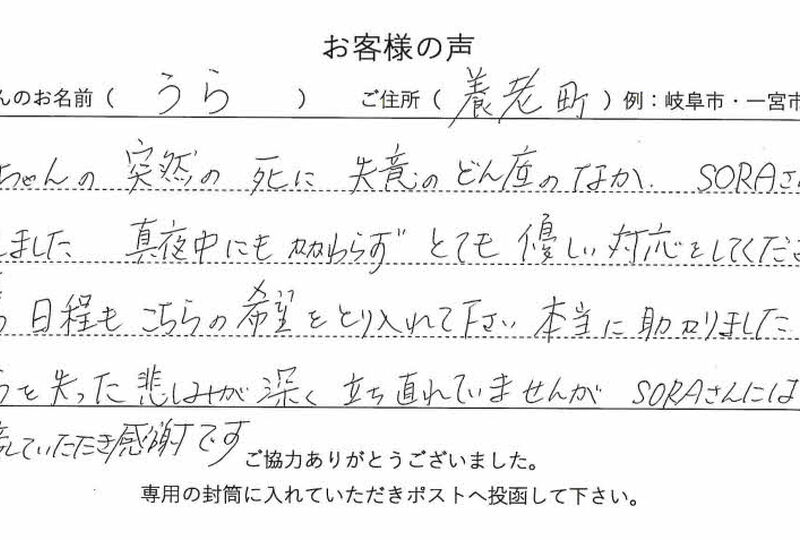 お客様の声
んのお名前（ うら ） ご住所（ 養老町 ）例：岐阜市・一宮市
ちゃんの 突然の 死に 失意の どん底の なか、 SORAさ
しました 真夜中にも 関わらず とても 優しい 対応をしてくださ
日程も こちらの 希望を とり入れて下さい 本当に 助かりました
を失った 悲しみが 深く 立ち直れていませんが SORAさんには
していただき感謝です
ご協力ありがとうございました。
専用の封筒に入れていただきポストへ投函して下さい。